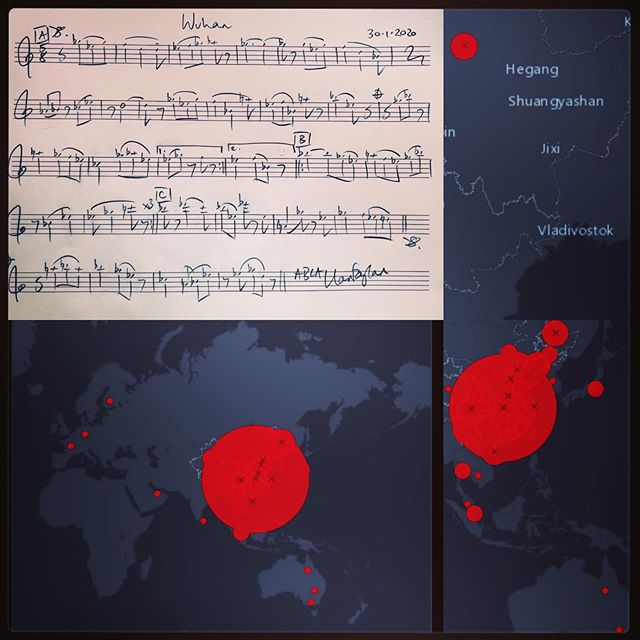 Wuhan
A 30.1.2020
1. 2. B
x3 C
ABCA
K
Hegang
Shuangyashan
in
Jixi
Vladivostok